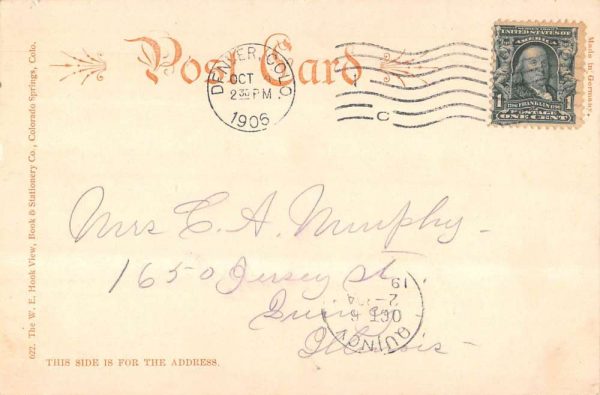 Post Card
DENVER, COLO.
OCT
2 30 PM
1906
C
UNITED STATES OF
AMERICA
1 FRANKLIN 1
POSTAGE
ONE CENT
Made in Germany.
622. The W. E. Hook View, Book & Stationery Co., Colorado Springs, Colo.
Mrs C. A. Murphy
1650 Jersey St.
Quincy
Illinois
QUINCY
OCT
2-
19
THIS SIDE IS FOR THE ADDRESS.